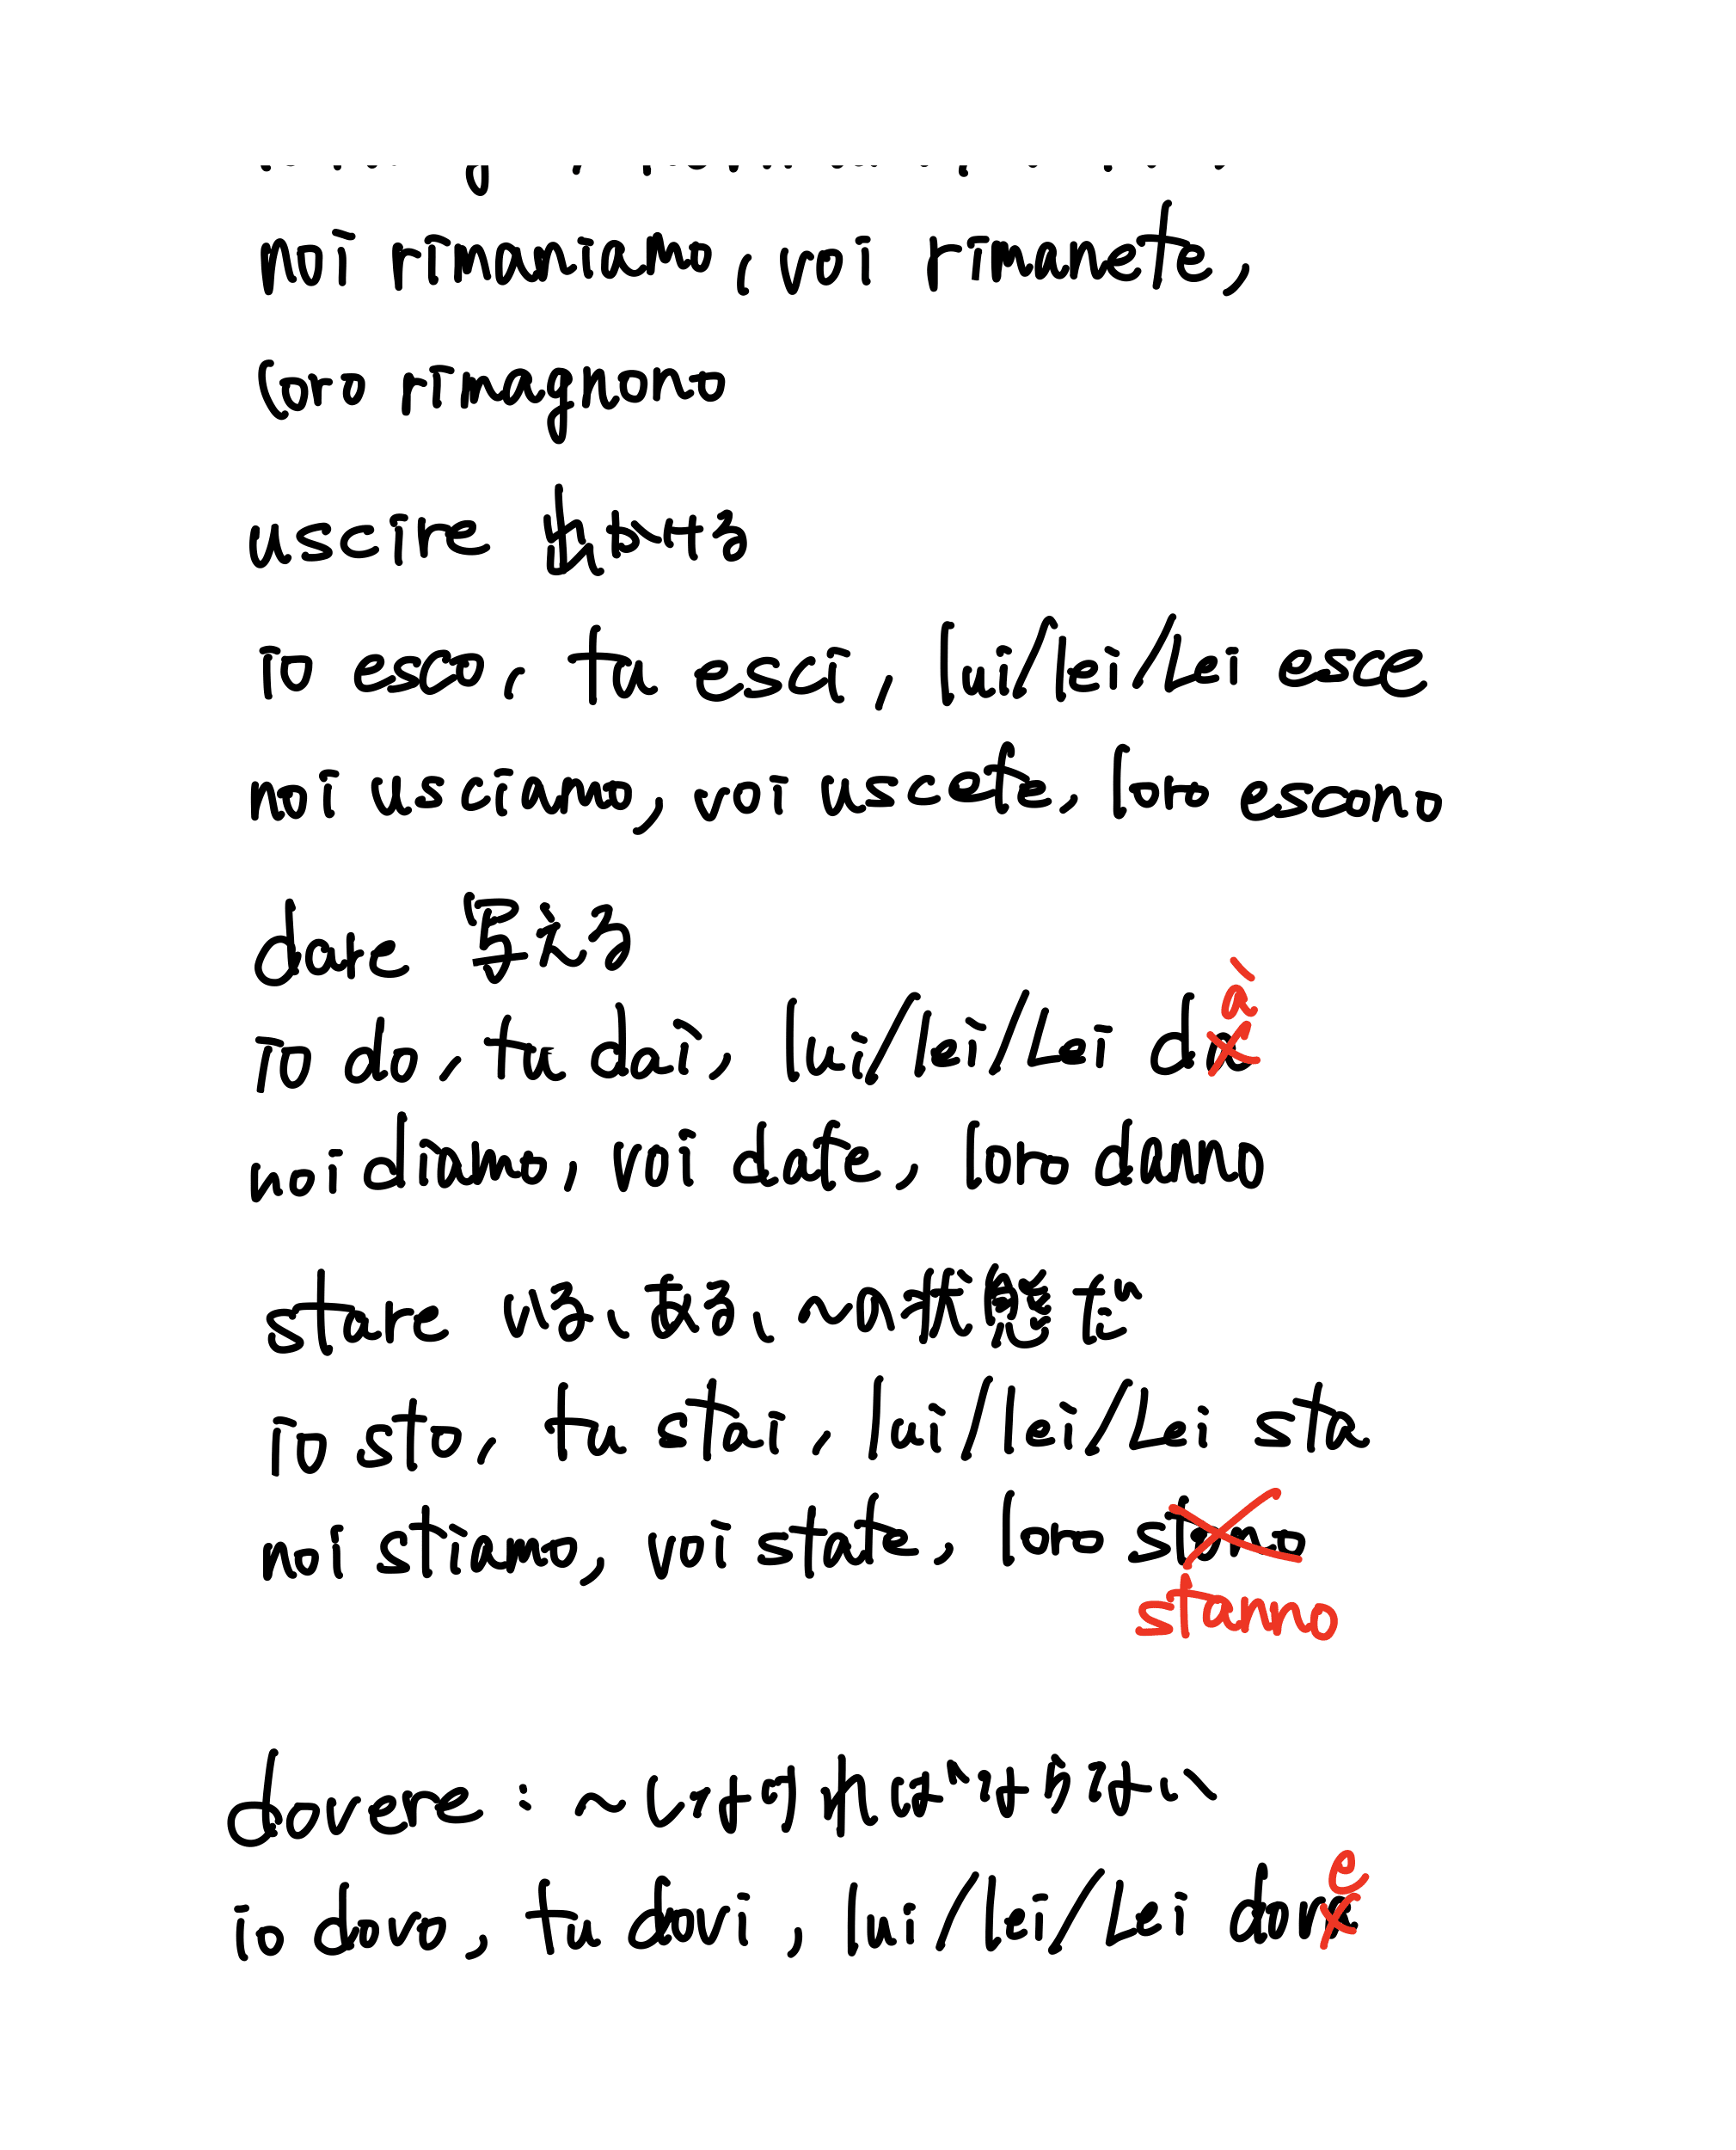 noi rimaniamo, voi rimanete,
loro rimagnono
uscire 出かける
io esco, tu esci, lui/lei/Lei esce
noi usciamo, voi uscete, loro escono
dare 与える
io do, tu dai, lui/lei/Lei da à
noi diamo, voi date, loro danno
stare いる、ある、〜の状態だ
io sto, tu stai, lui/lei/Lei sta
noi stiamo, voi state, loro stano
stanno
dovere : 〜しなければならない
io dovo, tu dovi, lui/lei/Lei dova e